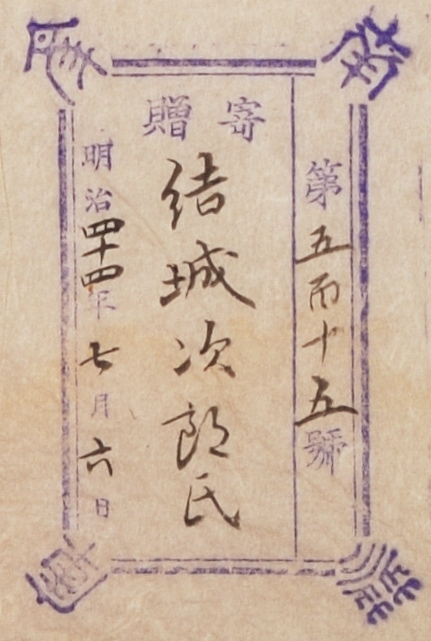 第五百十五號
寄贈
結城次郎氏
明治四十四年七月六日